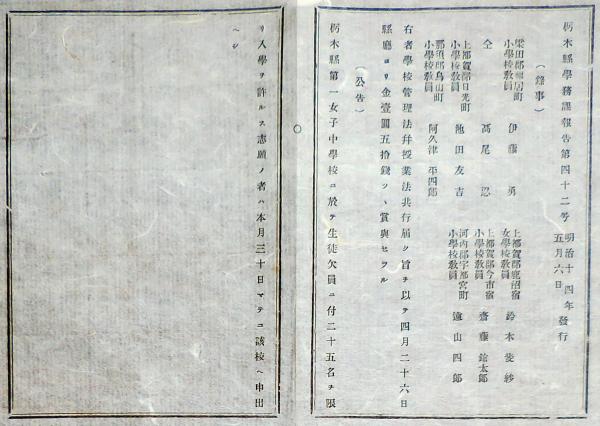 栃木縣學務課報告第四十二号
明治十四年五月六日發行
(錄事)
梁田郡福居町小學校敎員 伊藤勇
上都賀郡鹿沼宿女學校敎員 鈴木俊紗
仝 高尾忍
上都賀郡今市宿小學校敎員 齋藤鎗太郎
上都賀郡日光町小學校敎員 池田友吉
河內郡宇都宮町小學校敎員 遠山四郎
那須郡烏山町小學校敎員 阿久津平四郎
右者學校管理法幷授業法共行届ク旨ヲ以テ四月二十六日
縣廳ヨリ金壹圓五拾錢ツヽ賞與セラル
(公告)
栃木縣第一女子中學校ニ於テ生徒欠員ニ付二十五名ヲ限
リ入學ヲ許ルス志願ノ者ハ本月三十日マテニ該校ヘ申出
ヘシ